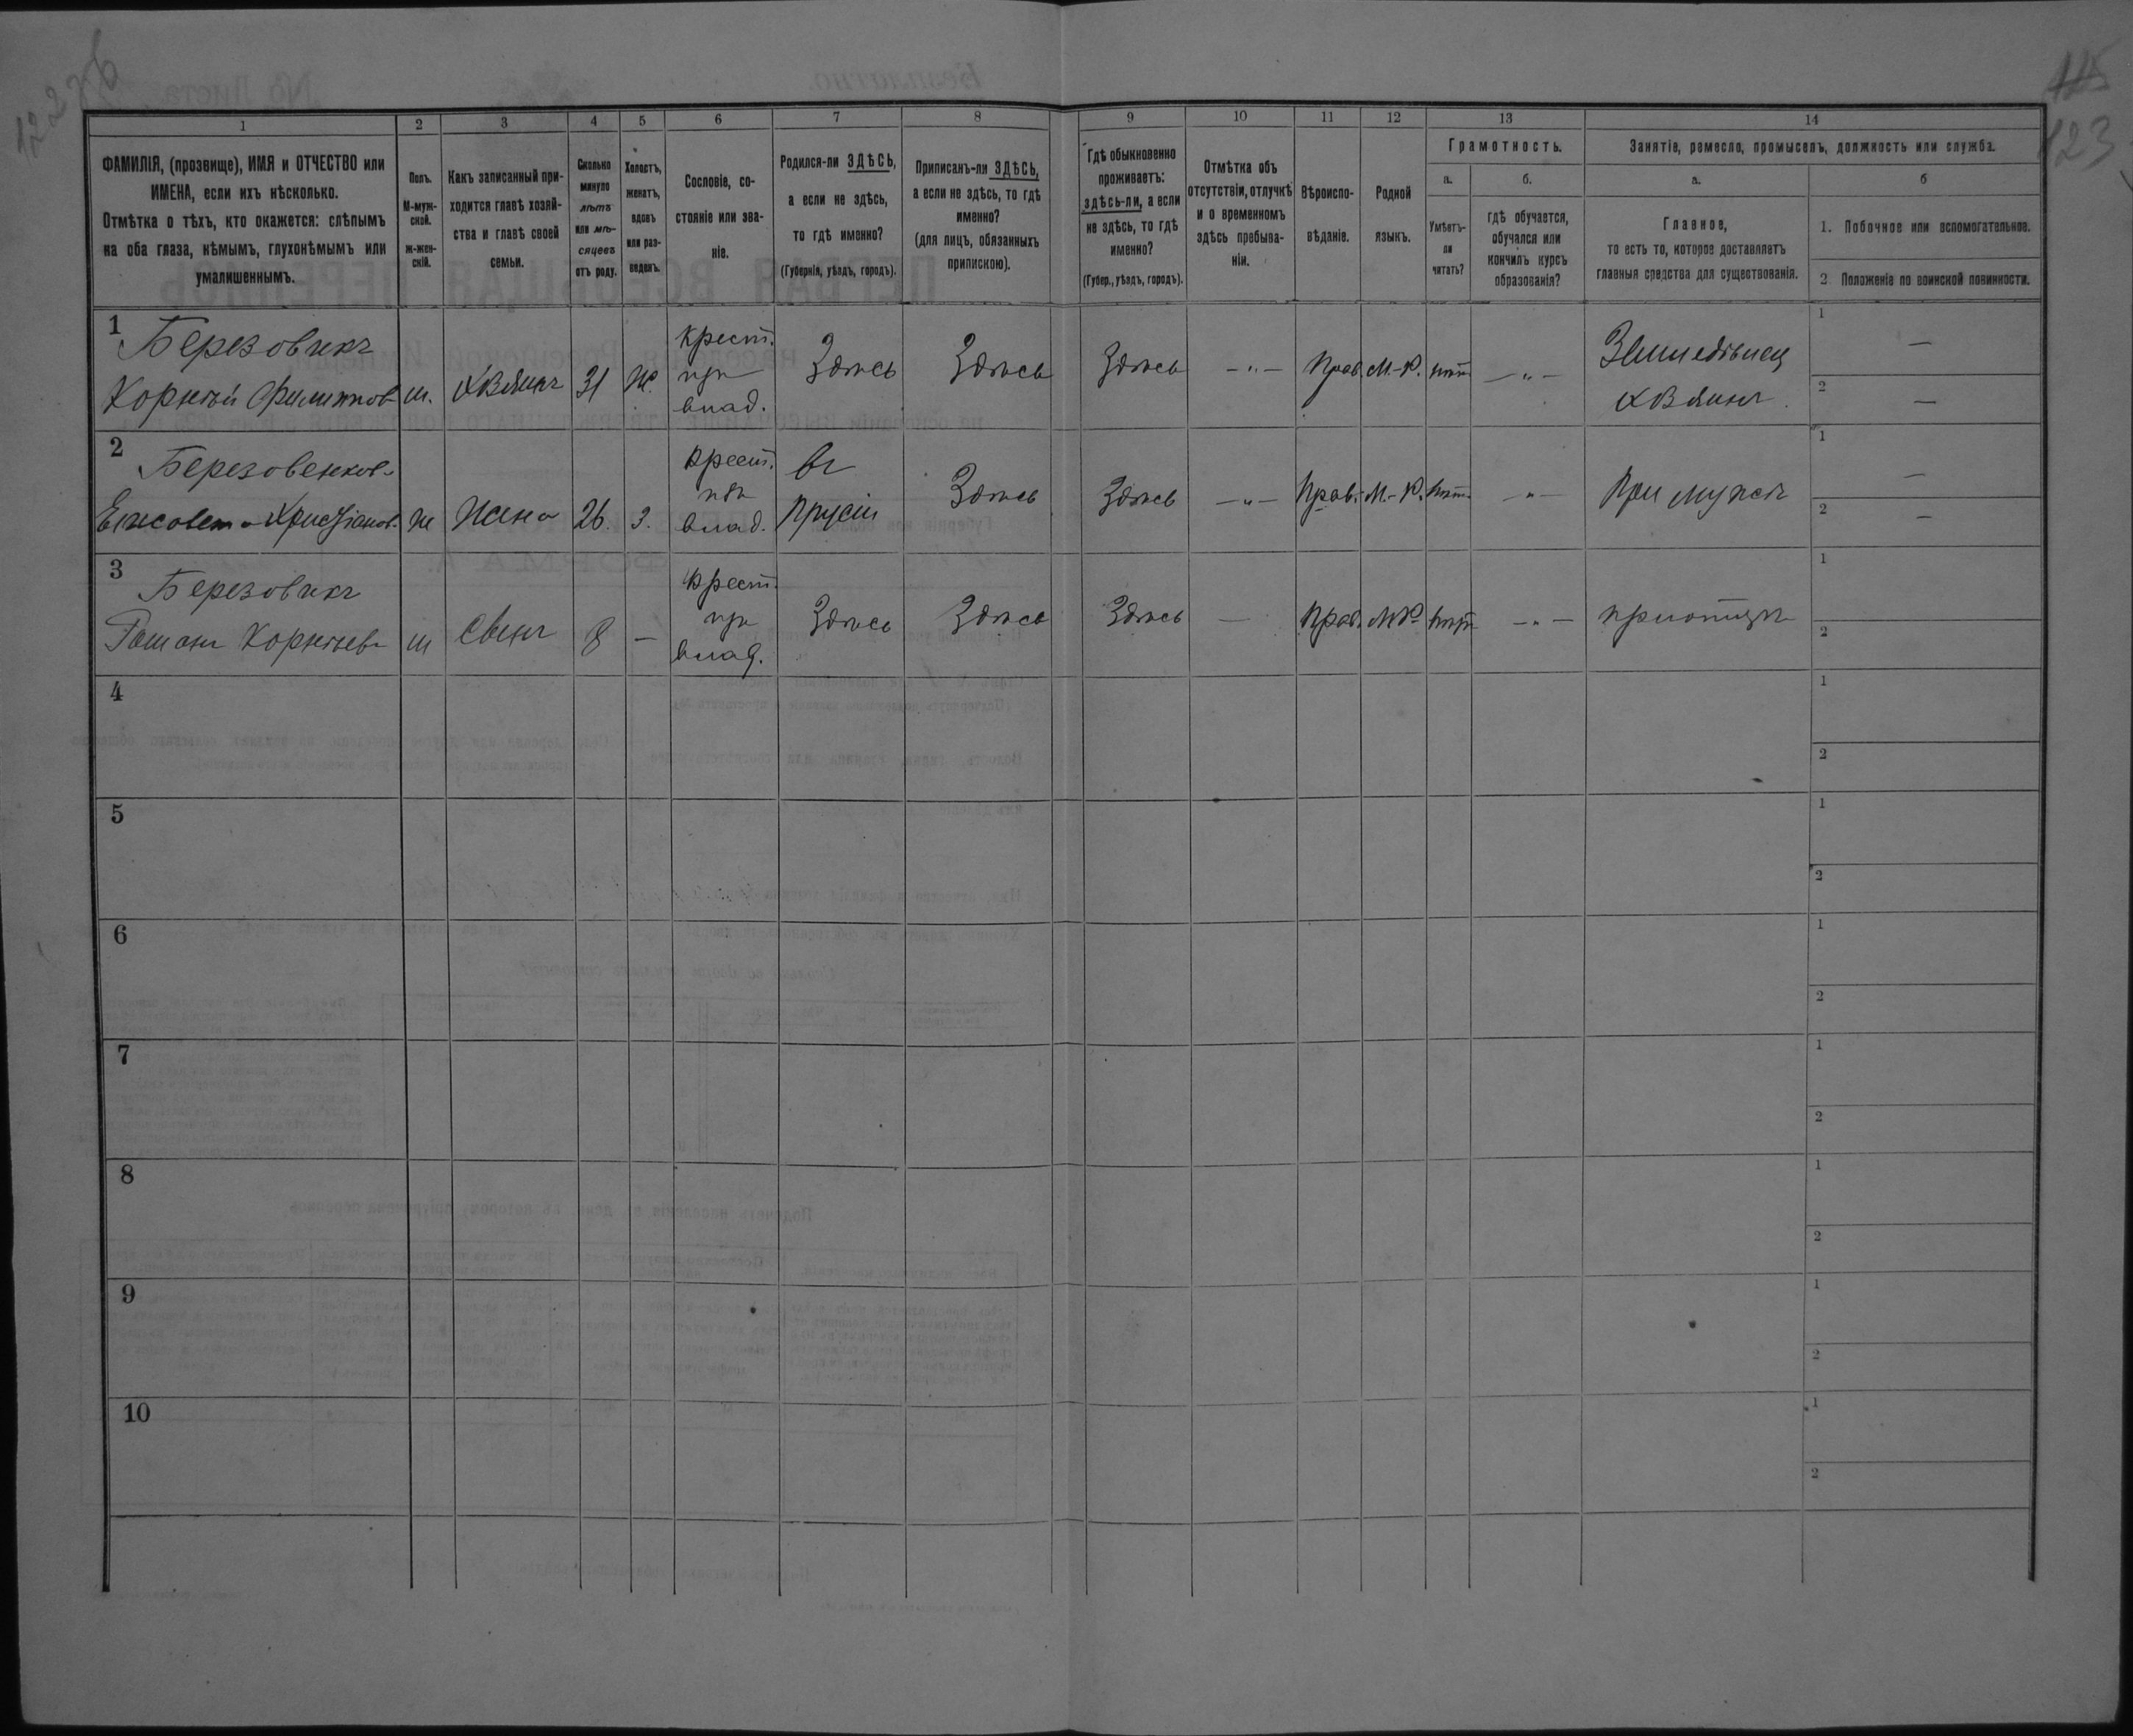 122 об
115
123
1
2
3
4
5
6
7
8
9
10
11
12
13
14
ФАМИЛІЯ, (прозвище), ИМЯ и ОТЧЕСТВО или
ИМЕНА, если ихъ нѣсколько.
Отмѣтка о тѣхъ, кто окажется: слѣпымъ
на оба глаза, нѣмымъ, глухонѣмымъ или
умалишеннымъ.
Полъ.
М-муж-
ской.
ж-жен-
скій.
Какъ записанный при-
ходится главѣ хозяй-
ства и главѣ своей
семьи.
Сколько
минуло
лѣтъ
или мѣ-
сяцевъ
отъ роду.
Холостъ,
женатъ,
вдовъ
или раз-
веденъ.
Сословіе, со-
стояніе или зва-
ніе.
Родился-ли ЗДѢСЬ,
а если не здѣсь,
то гдѣ именно?
(Губернія, уѣздъ, городъ).
Приписанъ-ли ЗДѢСЬ,
а если не здѣсь, то гдѣ
именно?
(для лицъ, обязанныхъ
припискою).
Гдѣ обыкновенно
проживаетъ:
здѣсь-ли, а если
не здѣсь, то гдѣ
именно?
(Губер., уѣздъ, городъ).
Отмѣтка объ
отсутствіи, отлучкѣ
и о временномъ
здѣсь пребыва-
ніи.
Вѣроиспо-
вѣданіе.
Родной
языкъ.
Грамотность.
а.
Умѣетъ-
ли
читать?
б.
гдѣ обучается,
обучался или
кончилъ курсъ
образованія?
Занятіе, ремесло, промыселъ, должность или служба.
а.
Главное,
то есть то, которое доставляетъ
главныя средства для существованія.
б
1. Побочное или вспомогательное.
2 Положеніе по воинской повинности.
1
Березовикъ
Корнѣй Филимонов м. хвяинъ 31 Ж.
Крест.
при
влад.
Здѣсь Здѣсь Здѣсь — " — Прав. М.-Р. нѣтъ — " —
Земледѣлец
хвяинъ
1 —
2 —
2
Березовенков
Елисавета Христіанов. ж Жена 26. З.
Крест.
при
влад.
въ
Прусіи
Здѣсь Здѣсь — " — Прав. М.-Р. нѣтъ — " — При мужѣ
1 —
2 —
3
Березовикъ
Романъ Корнѣевъ м Сынъ 8 —
Крест.
при
влад.
Здѣсь Здѣсь Здѣсь — Прав. МР нѣтъ — " — приотцѣ
1
2
4
1
2
5
1
2
6
1
2
7
1
2
8
1
2
9
1
2
10
1
2